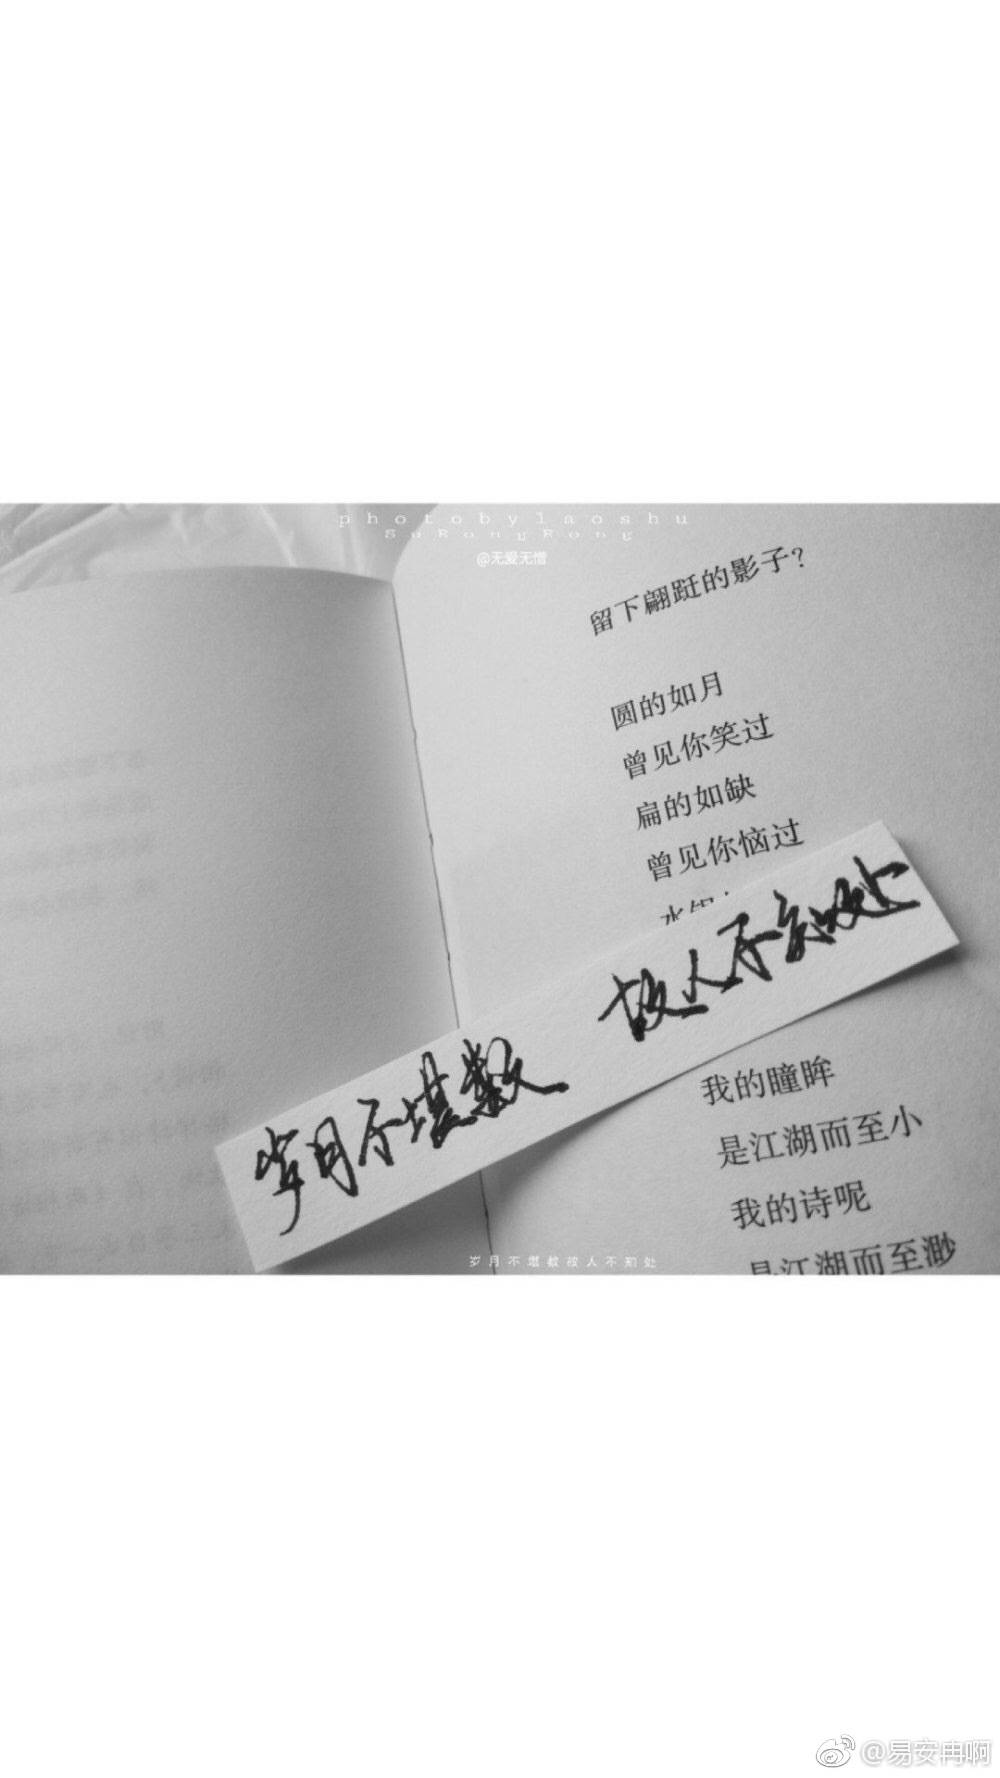 photobylaoshu
SuRongRong
@无爱无憎
留下翩跹的影子？
圆的如月
曾见你笑过
扁的如缺
曾见你恼过
岁月不堪数 故人不知处
我的瞳眸
是江湖而至小
我的诗呢
是江湖而至渺
岁月不堪数故人不知处
@易安冉啊